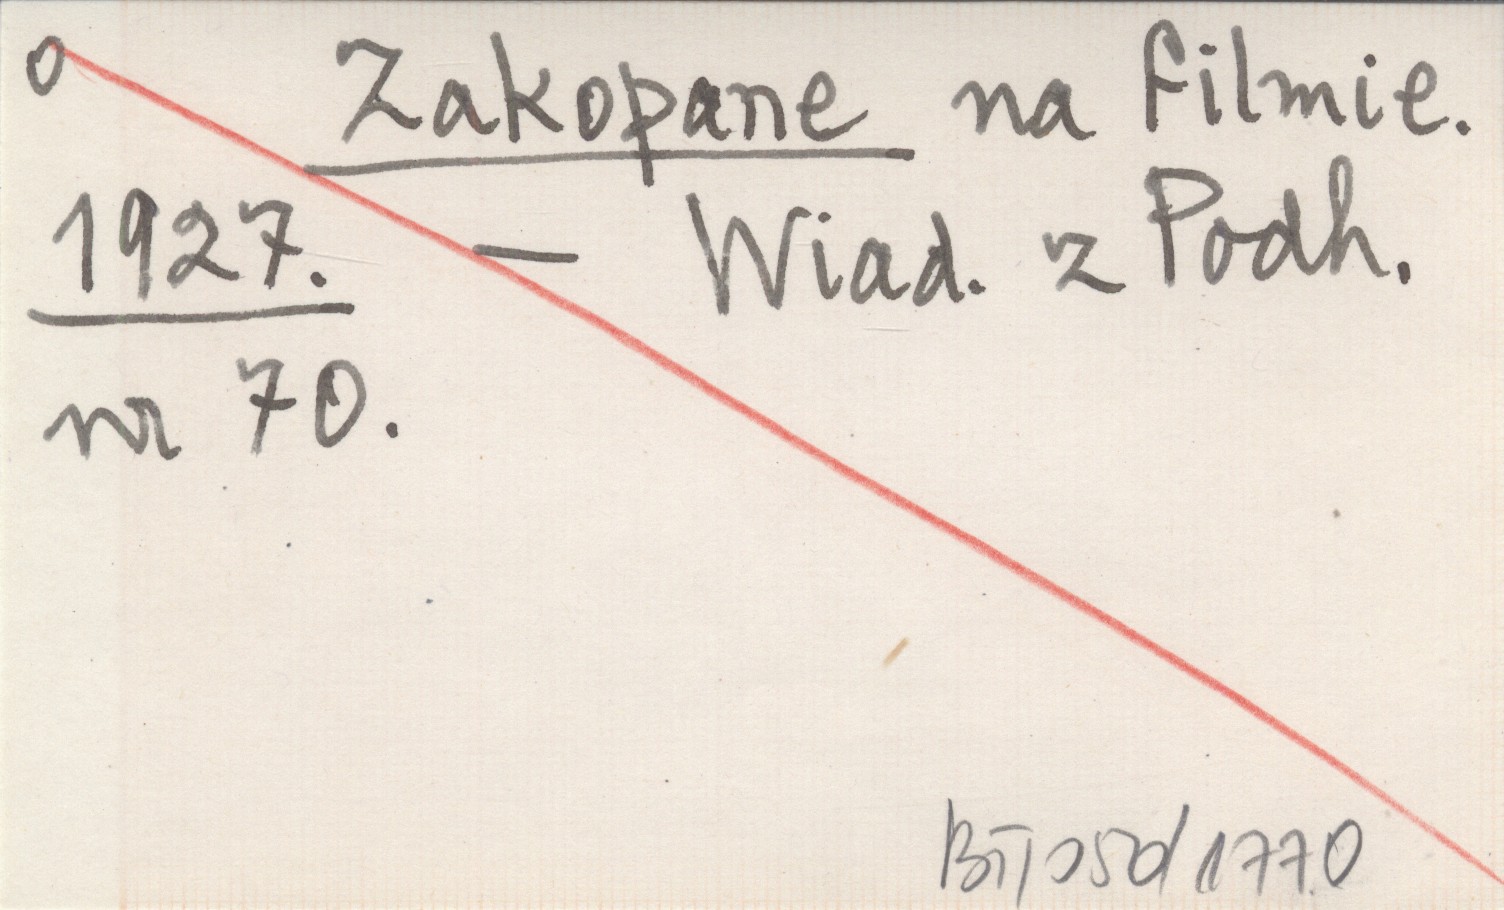 o Zakopane na filmie.
1927. — Wiad. z Podh.
nr 70.
1770